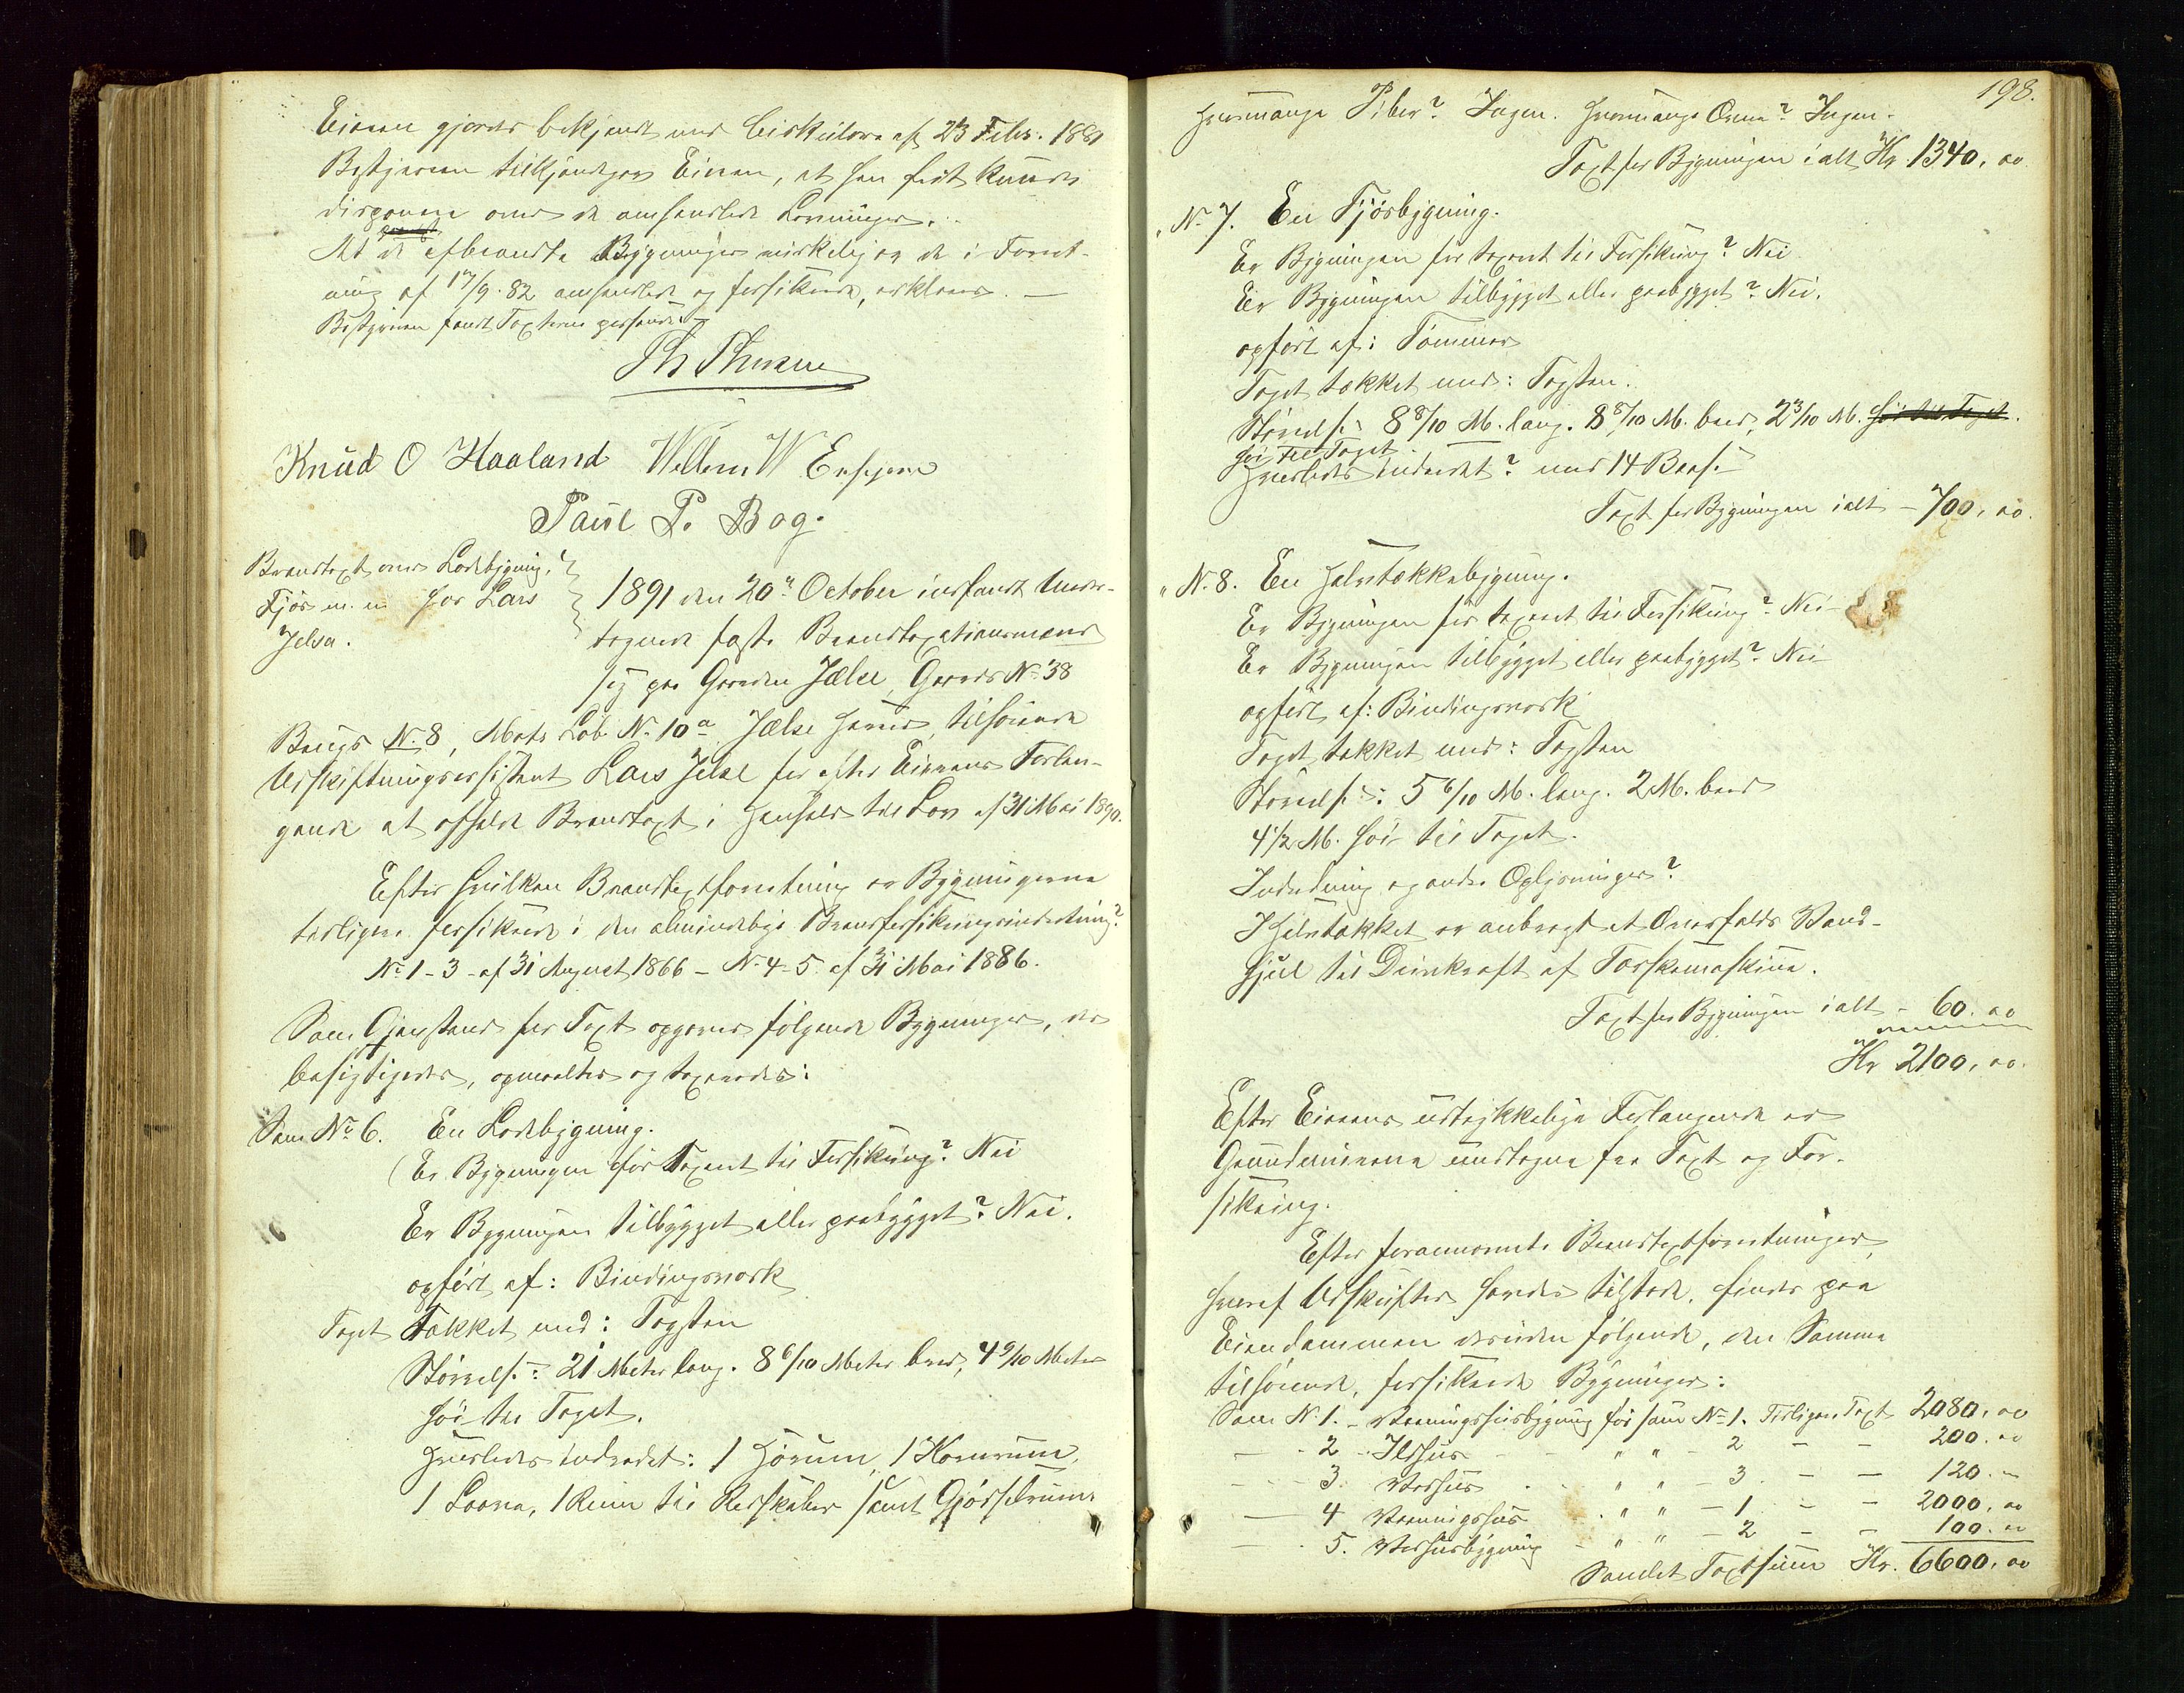 Eieren gjordes bekjendt med Cirkulære af 23 Febr. 1881
Bestyreren tilkjendegav Eieren, at han frit kunde
disponere over de omhandlede Levninger.
At de afbrændte Bygninger virkelig er de i Forret-
ning af 17/9 82 omhandlede og forsikrede, erklæres. —
Bestyreren fandt Taxterne passende
Knud O Haaland Willem W
Paul P. Bog.
Brandtaxt over Ladebygning,
Fjøs m. m. hos Lars
Jelsa.
1891 den 20de October indfandt Under-
tegnede faste Brandtaxationsmænd
sig paa Gaarden Jælse, Gaards No 38
Brugs No 8, Matr. Løb No 10a Jælse Herred, tilhørende
Udskiftningsassistent Lars Jelse for efter Eierens Forlan-
gende at afholde Brandtaxt i Henhold til Lov af 31 Mai 1890.
Efter hvilken Brandtaxtforretning er Bygningerne
tidligere forsikrede i den almindelige Brandforsikringsindretning?
No 1-3 - af 31 August 1866 - No 4-5 af 31 Mai 1886.
Som Gjenstand for Taxt opgaves følgende Bygninger, der
besigtigedes, opmaaltes og taxeredes:
Som No 6. En Ladebygning.
Er Bygningen før taxeret til Forsikring? Nei
Er Bygningen tilbygget eller paabygget? Nei.
opført af: Bindingsværk
Taget Tækket med: Tagsten
Størrelse: 21 Meter lang. 8 6/10 Meter bred, 4 9/10 Meter
høi til Taget.
Hvorledes indredet: 1 Hørum, 1 Kornrum,
1 Laave, 1 Rum til Redskaber samt Gjødselrum.
198.
Hvormange Piber? Ingen. Hvormange Ovne? Ingen.
Taxt for Bygningen ialt Kr. 1340, 00
" No 7. En Fjøsbygning.
Er Bygningen før taxeret til Forsikring? Nei
Er Bygningen tilbygget eller paabygget? Nei.
opført af: Tømmer
Taget tækket med: Tagsten.
Størrelse: 8 8/10 M. lang. 8 8/10 M. bred, 2 3/10 M. høi til Taget.
høi til Taget.
Hvorledes indredet? med 14 Baase
Taxt for Bygningen ialt - 700, 00.
" No 8. En Halvtækkebygning.
Er Bygningen før taxeret til Forsikring? Nei
Er Bygningen tilbygget eller paabygget? Nei
opført af: Bindingsværk
Taget tækket med: Tagsten
Størrelse: 5 6/10 M. lang. 2 M. bred
4 1/2 M. høi til Taget.
Indredning og andre Oplysninger?
I Halvtækket er anbragt et Overfalds Vand-
hjul til Drivkraft af Tærskemaskine.
Taxt for Bygningen ialt - 60. 00
Kr 2100, 00.
Efter Eierens udtrykkelige Forlangende er
Grundmurene undtagne fra Taxt og For-
sikring.
Efter forannævnte Brandtaxtforretninger,
hvoraf Udskrifter havdes tilstede, findes paa
Eiendommen desuden følgende, den Samme
tilhørende, forsikrede Bygninger:
Som No 1. - Vaaningshusbygning før som No 1. Tidligere Taxt 2080, 00
— - 2 - Ildhus - " " - 2 - — 200. 00
— - 3. Vedhus . " " - 3 - — 120. —
— 4 Vaaningshus . " " - 1 - — 2000, 00
— - 5. Vedhusbygning - " " - 2 - — 100. 00
Samlet Taxtsum Kr. 6600, 00